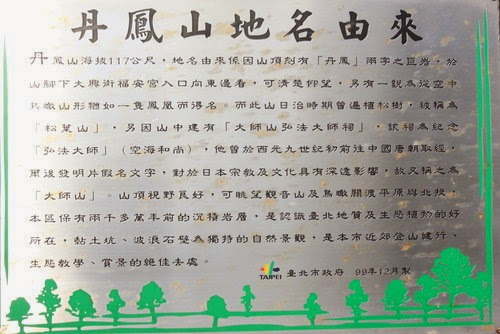 丹鳳山地名由來
丹鳳山海拔117公尺，地名由來係因山頂刻有「丹鳳」兩字之巨岩，於
山腳下大興街福安宮入口向東邊看，可清楚仰望，另有一說為從空中
鳥瞰山形猶如一隻鳳凰而得名。而此山日治時期曾遍植松樹，故稱為
「松葉山」，另因山中建有「大師山弘法大師祠」，該祠為紀念
「弘法大師」（空海和尚），他曾於西元九世紀初前往中國唐朝取經，
爾後發明片假名文字，對於日本宗教及文化具有深遠影響，故又稱之為
「大師山」。山頂視野良好，可眺望觀音山及鳥瞰關渡平原與北投，
本區保有兩千多萬年前的沉積岩層，是認識臺北地質及生態植物的好
所在，黏土坑、波浪石壁為獨特的自然景觀，是本市近郊登山健行、
生態教學、賞景的絕佳去處。
TAIPEI 臺北市政府 99年12月製